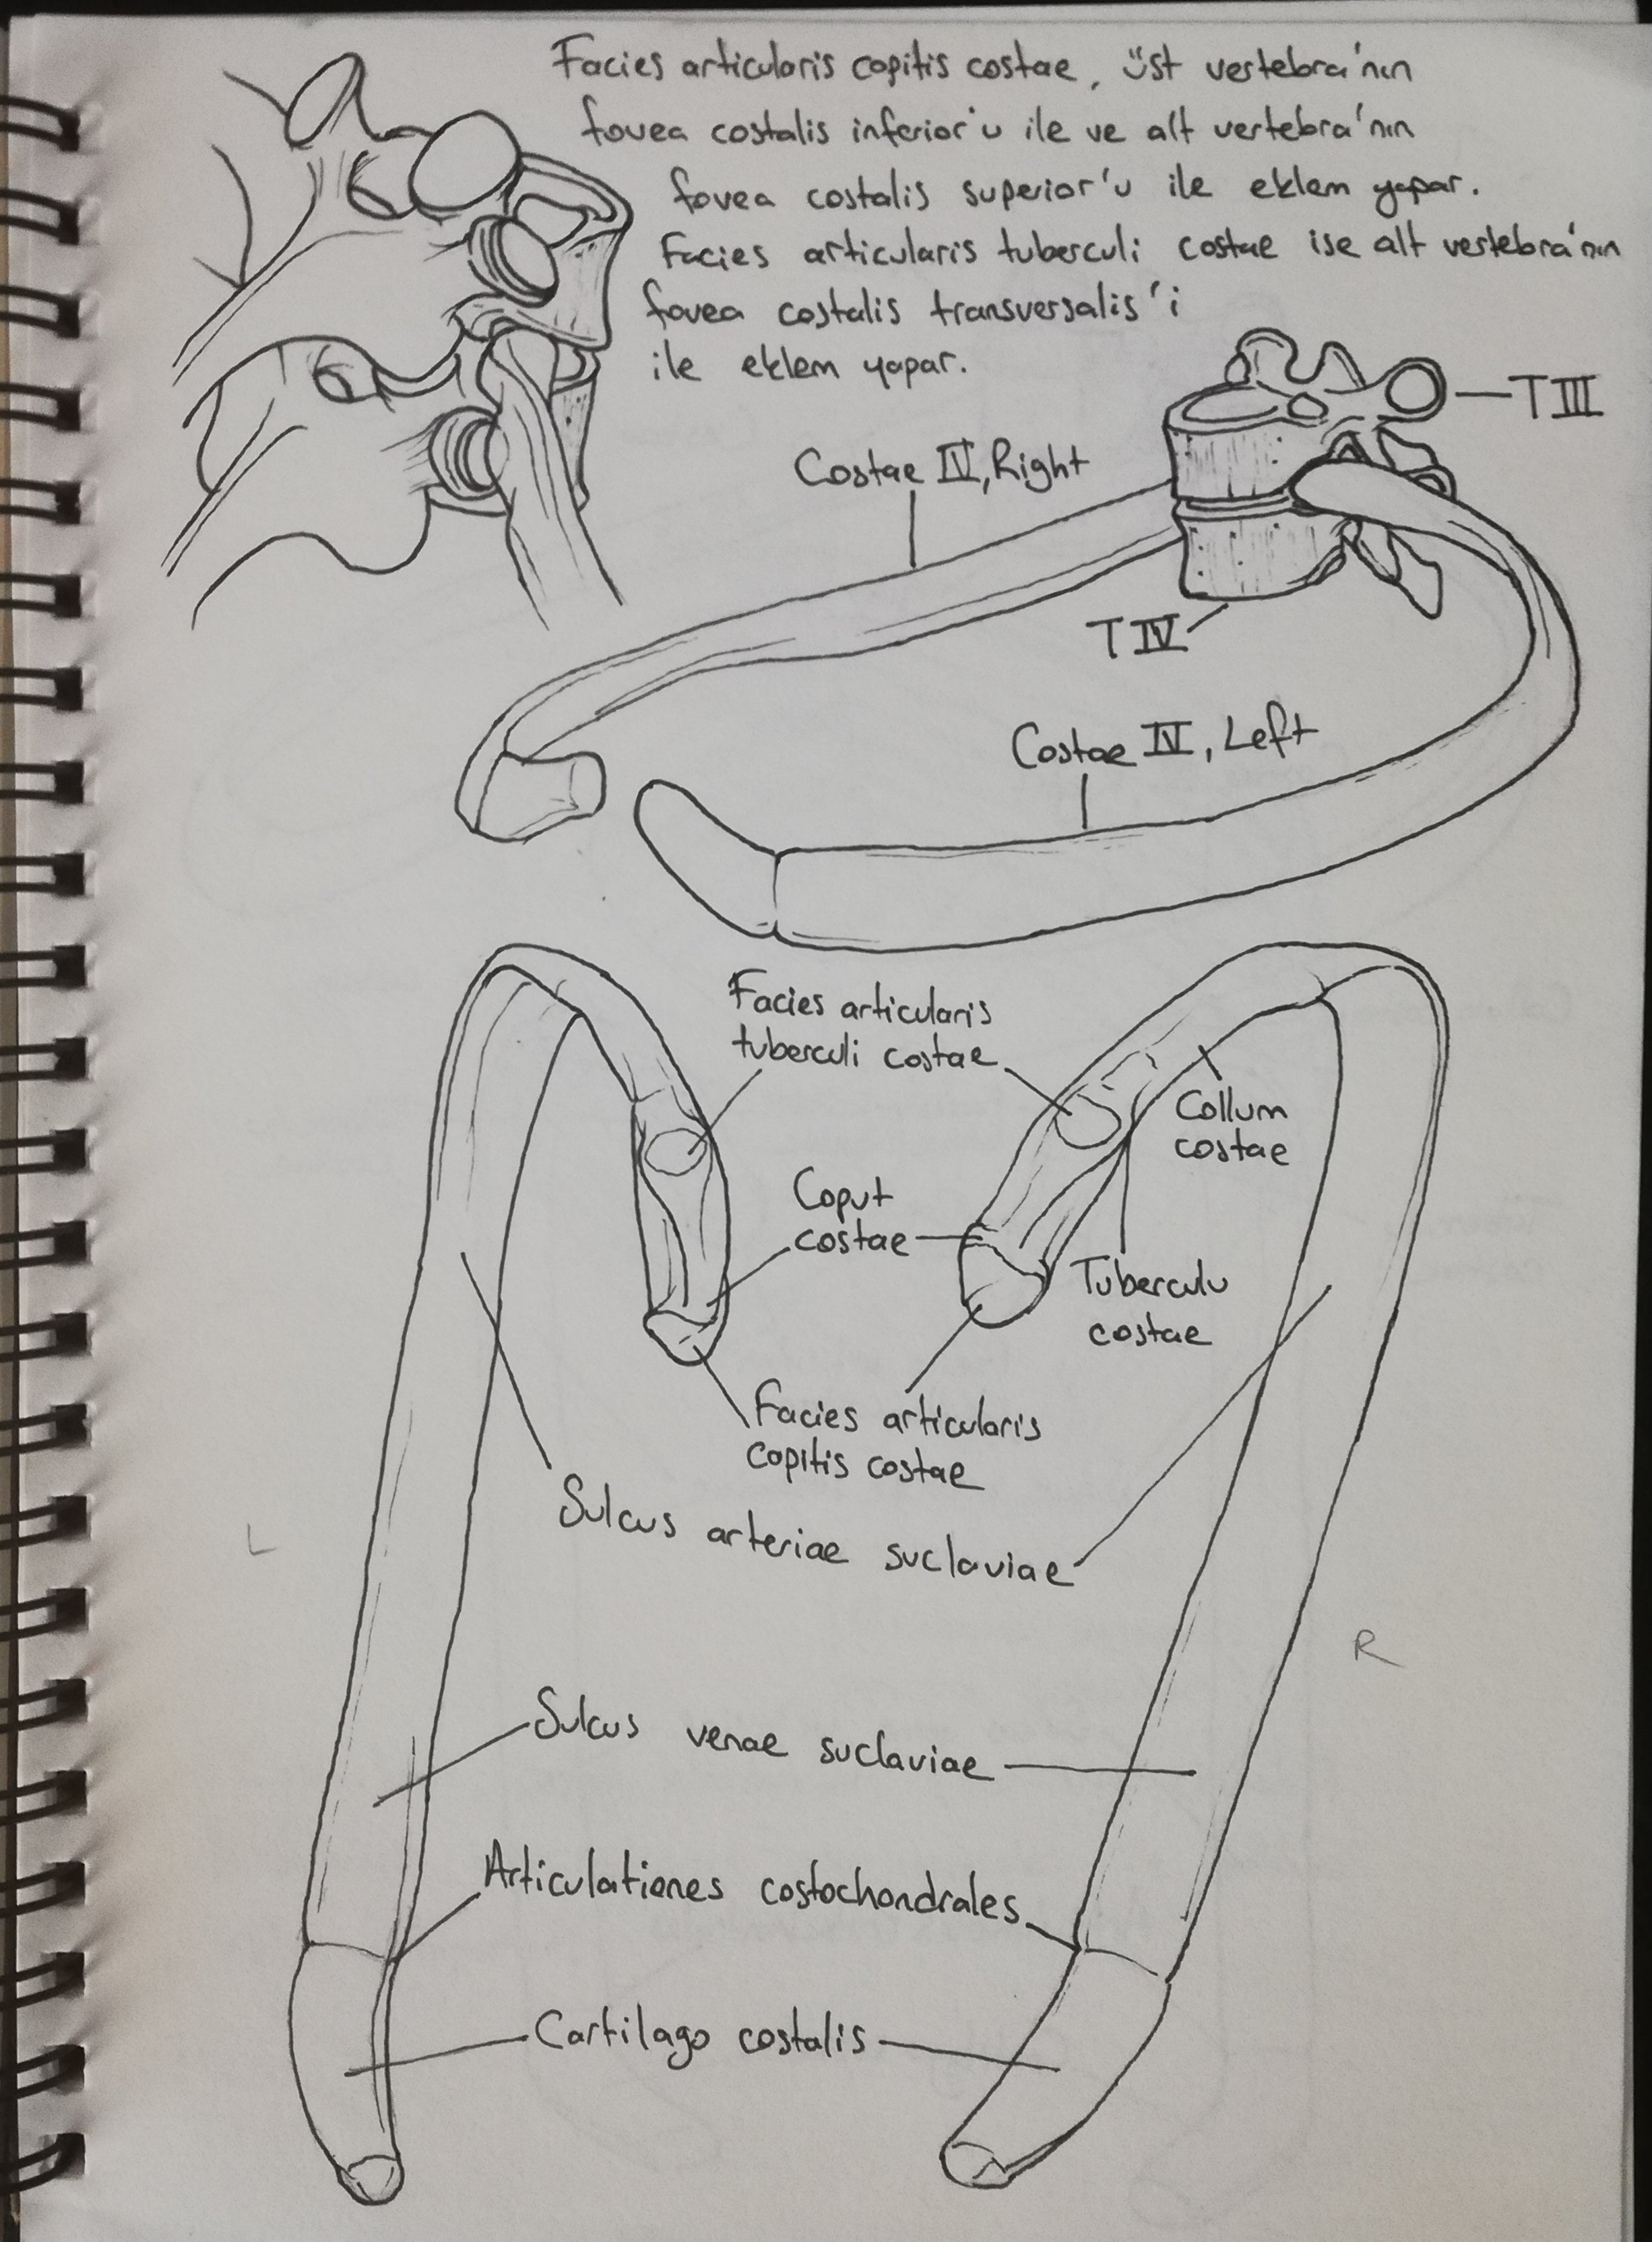 Facies articularis capitis costae, üst vertebra'nın
fovea costalis inferior'u ile ve alt vertebra'nın
fovea costalis superior'u ile eklem yapar.
Facies articularis tuberculi costae ise alt vertebra'nın
fovea costalis transversalis'i
ile eklem yapar.
TIII
Costae IV, Right
TIV
Costae IV, Left
Facies articularis
tuberculi costae
Collum
costae
Caput
costae
Tuberculu
costae
Facies articularis
capitis costae
Sulcus arteriae suclaviae
L
R
Sulcus venae suclaviae
Articulationes costochondrales
Cartilago costalis